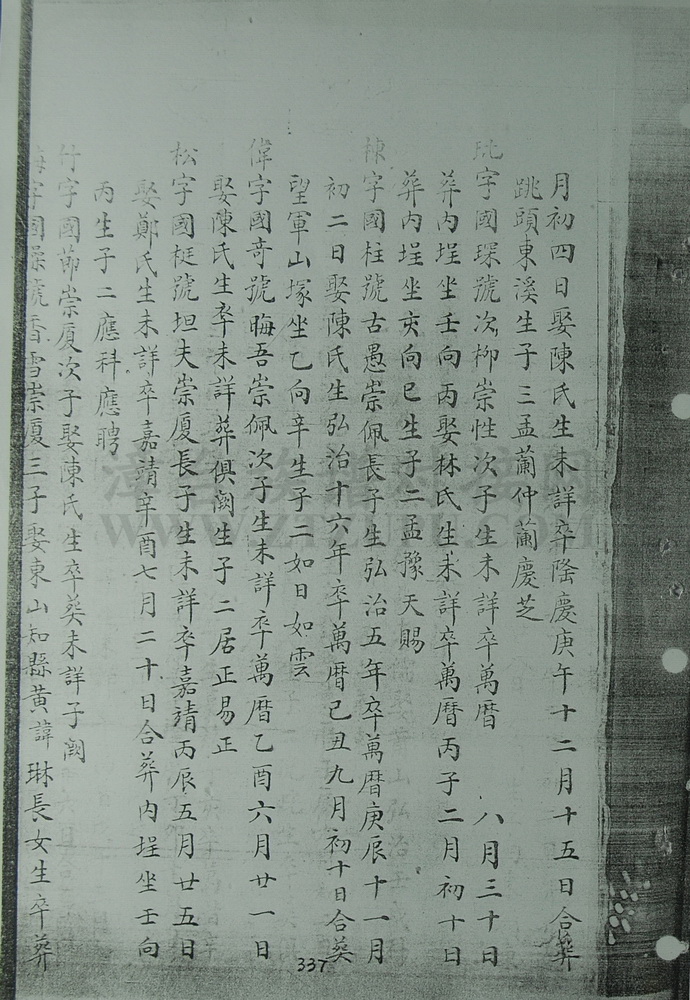 月初四日娶陳氏生未詳卒隆慶庚午十二月十五日合葬
跳頭東溪生子三孟蘭仲蘭慶芝
字國琛號次柳崇性次子生未詳卒萬曆 八月三十日
葬內埕坐壬向丙娶林氏生未詳卒萬曆丙子二月初十日
葬內埕坐亥向巳生子二孟豫天賜
棟字國柱號古愚崇佩長子生弘治五年卒萬曆庚辰十一月
初二日娶陳氏生弘治十六年卒萬曆己丑九月初十日合葬
望軍山塚坐乙向辛生子二如日如雲
偉字國奇號晦吾崇佩次子生未詳卒萬曆乙酉六月廿一日
娶陳氏生卒未詳葬俱闕生子二居正易正
松字國梃號坦夫崇廈長子生未詳卒嘉靖丙辰五月廿五日
娶鄭氏生未詳卒嘉靖辛酉七月二十日合葬內埕坐壬向
丙生子二應科應聘
竹字國節崇廈次子娶陳氏生卒葬未詳子闕
字國號香雪崇廈三子娶東山知縣黃諱琳長女生卒葬
337
WWW.ZTZUPU.COM